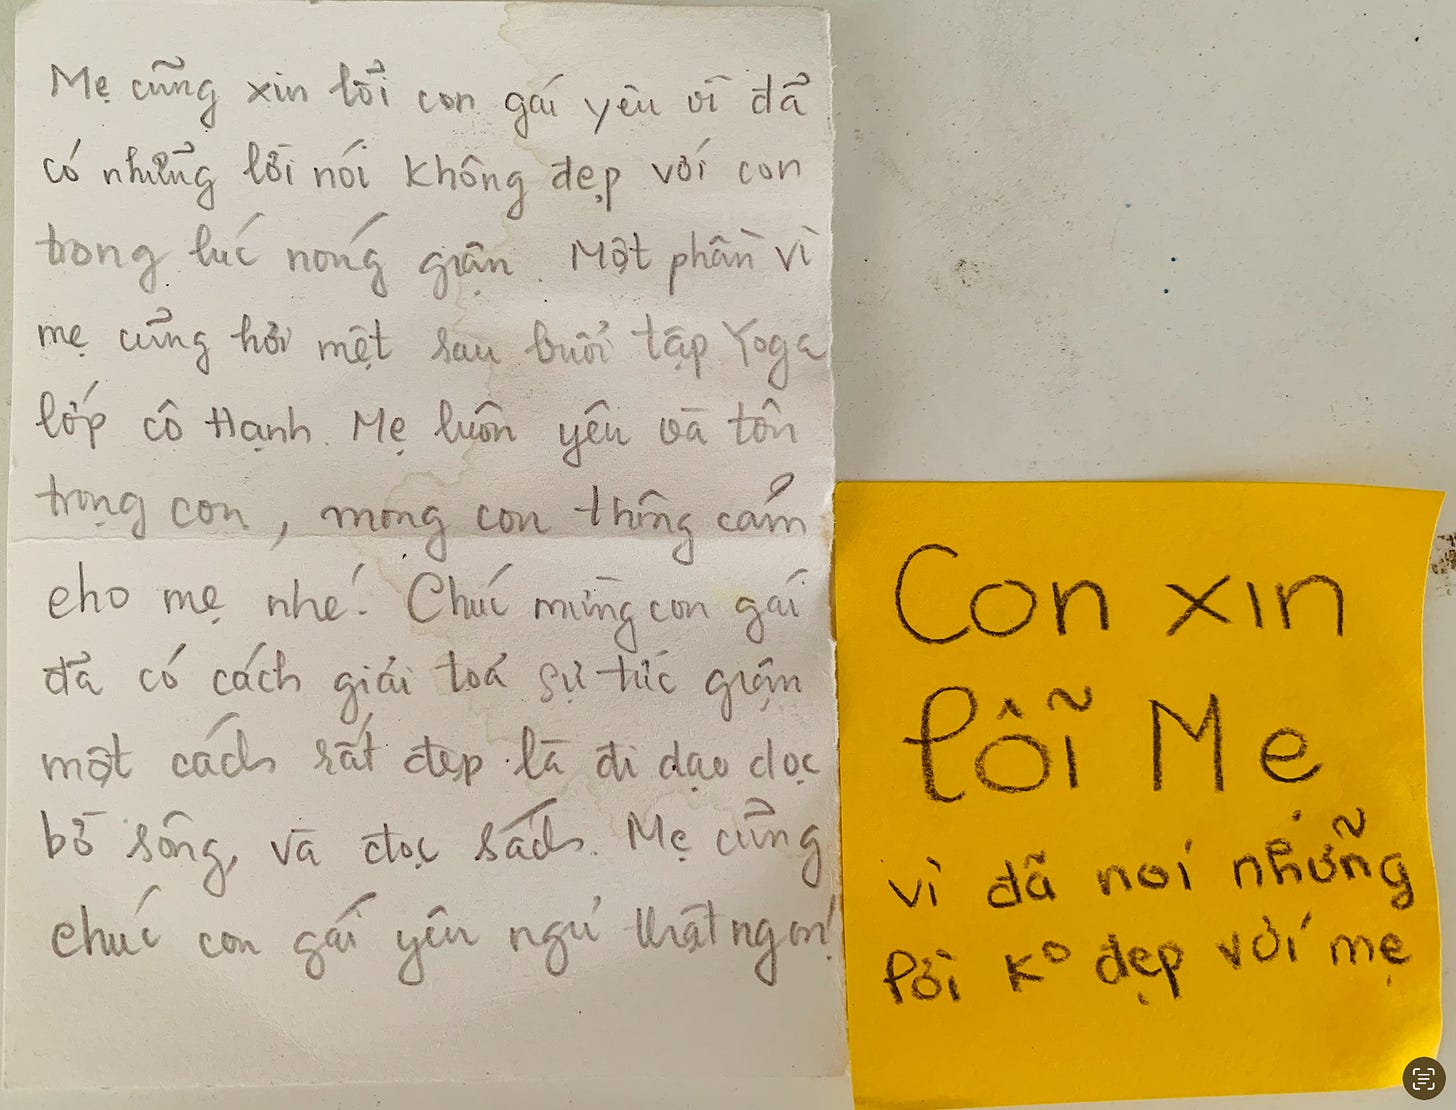 Mẹ cũng xin lỗi con gái yêu vì đã
có những lời nói không đẹp với con
trong lúc nóng giận. Một phần vì
mẹ cũng hơi mệt sau buổi tập Yoga
lớp cô Hạnh. Mẹ luôn yêu và tôn
trọng con, mong con thông cảm
cho mẹ nhé! Chúc mừng con gái
đã có cách giải toả sự tức giận
một cách rất đẹp là đi dạo dọc
bờ sông, và đọc sách. Mẹ cũng
chúc con gái yêu ngủ thật ngon!
Con xin
lỗi Mẹ
vì đã nói những
lời ko đẹp với mẹ